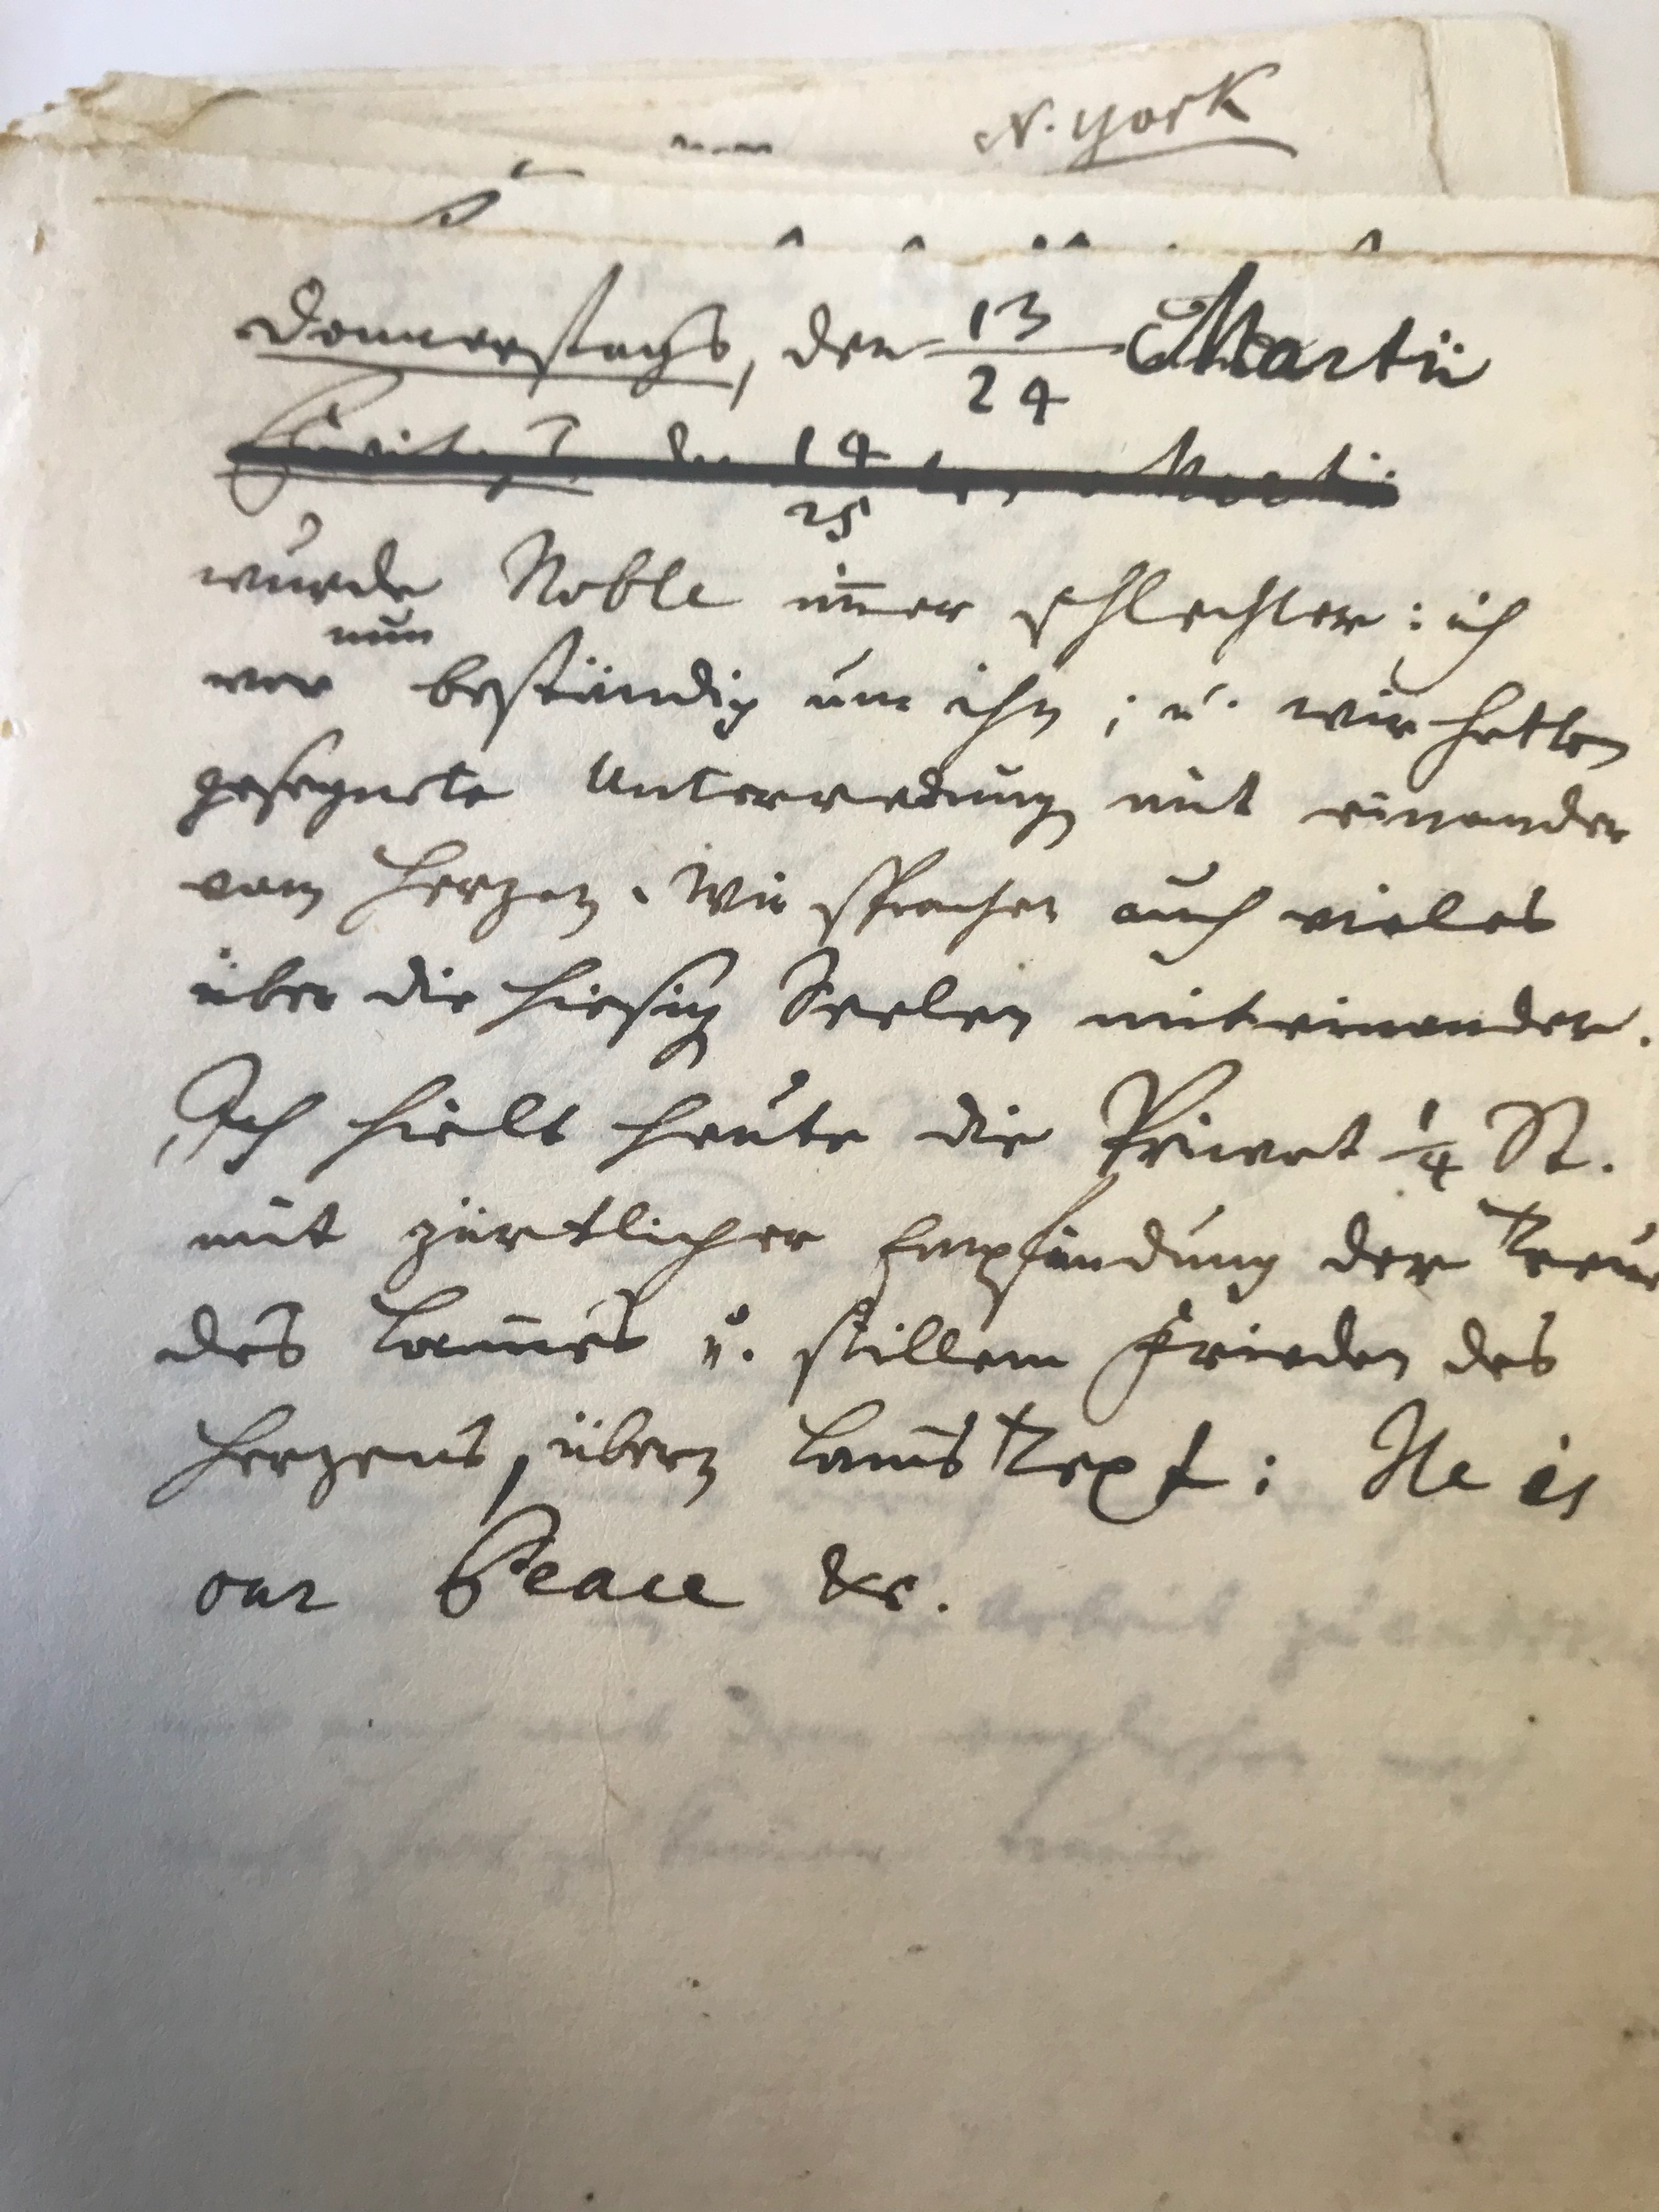 N. York
Donnerstags, den 13/24 Martii
Freitags den 14/25ten Martii
wurde Noble im̅er schlechter: ich
nun
war beständig um ihn; u. wir hatten
gesegnete Unterredung mit einander
vom Herzen. Wir sprachen auch vieles
über die hiesige Seelen miteinander.
Ich hielt heute die Privat 1/4 St.
mit zärtlicher Empfindung der Treue
des Lam̅es u. stillem Frieden des
Herzens, übern Lam̅s Text: He is
our Peace &c.